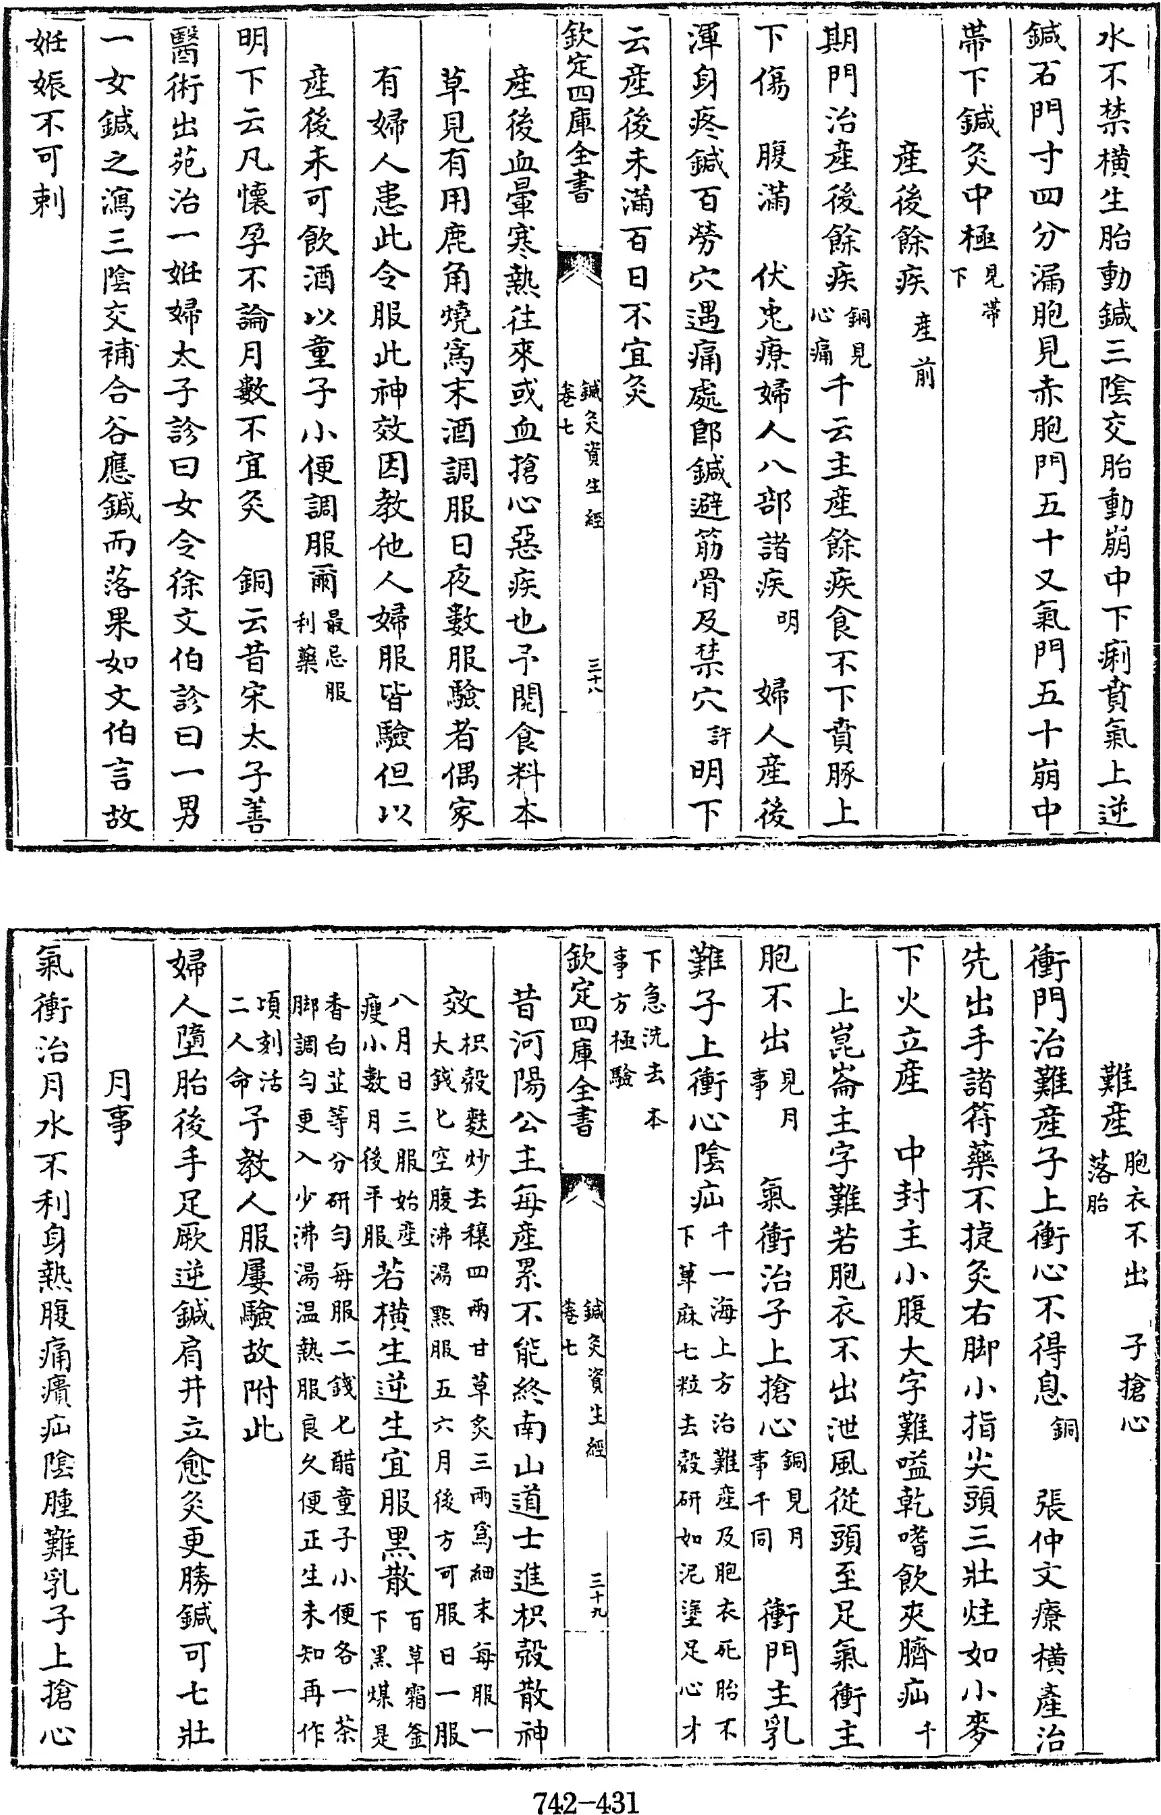 水不禁橫生胎動鍼三陰交胎動崩中下痢賁氣上逆
鍼石門寸四分漏胞見赤胞門五十又氣門五十崩中
帶下鍼灸中極見帶下
產後餘疾產前
期門治產後餘疾銅見心痛千云主產餘疾食不下賁豚上
下傷 腹滿 伏兎療婦人八部諸疾明 婦人產後
渾身疼鍼百勞穴遇痛處即鍼避筋骨及禁穴許明下
云産後未滿百日不宜灸
欽定四庫全書 鍼灸資生經卷七 三十八
産後血暈寒熱往來或血搶心惡疾也予閱食料本
草見有用鹿角燒爲末酒調服日夜數服驗者偶家
有婦人患此令服此神效因教他人婦服皆驗但以
産後未可飲酒以童子小便調服爾最忌服利藥
明下云凡懷孕不論月數不宜灸 銅云昔宋太子善
醫術出苑治一妊婦太子診曰女令徐文伯診曰一男
一女鍼之瀉三陰交補合谷應鍼而落果如文伯言故
妊娠不可刺
難產胞衣不出 子搶心落胎
衝門治難產子上衝心不得息銅 張仲文療橫產治
先出手諸符藥不捷灸右脚小指尖頭三壯炷如小麥
下火立産 中封主小腹大字難嗌乾嗜飲夾臍疝千
上崑崙主字難若胞衣不出泄風從頭至足氣衝主
胞不出見月事 氣衝治子上搶心銅見月事千同 衝門主乳
難子上衝心陰疝千一海上方治難產及胞衣死胎不下萆麻七粒去殼研如泥塗足心才
下急洗去本事方極驗
欽定四庫全書 鍼灸資生經卷七 三十九
昔河陽公主每產累不能終南山道士進枳殼散神
效枳殼麩炒去穰四兩甘草炙三兩爲細末每服一大錢匕空腹沸湯點服五六月後方可服日一服
八月日三服始產瘦小數月後平服若橫生逆生宜服黑散百草霜釜下黑煤是
香白芷等分研勻每服二錢匕醋童子小便各一茶脚調勻更入少沸湯温熱服良久便正生未知再作
頃刻活二人命予教人服屢驗故附此
婦人墮胎後手足厥逆鍼肩井立愈灸更勝鍼可七壯
月事
氣衝治月水不利身熱腹痛㿗疝陰腫難乳子上搶心
742-431